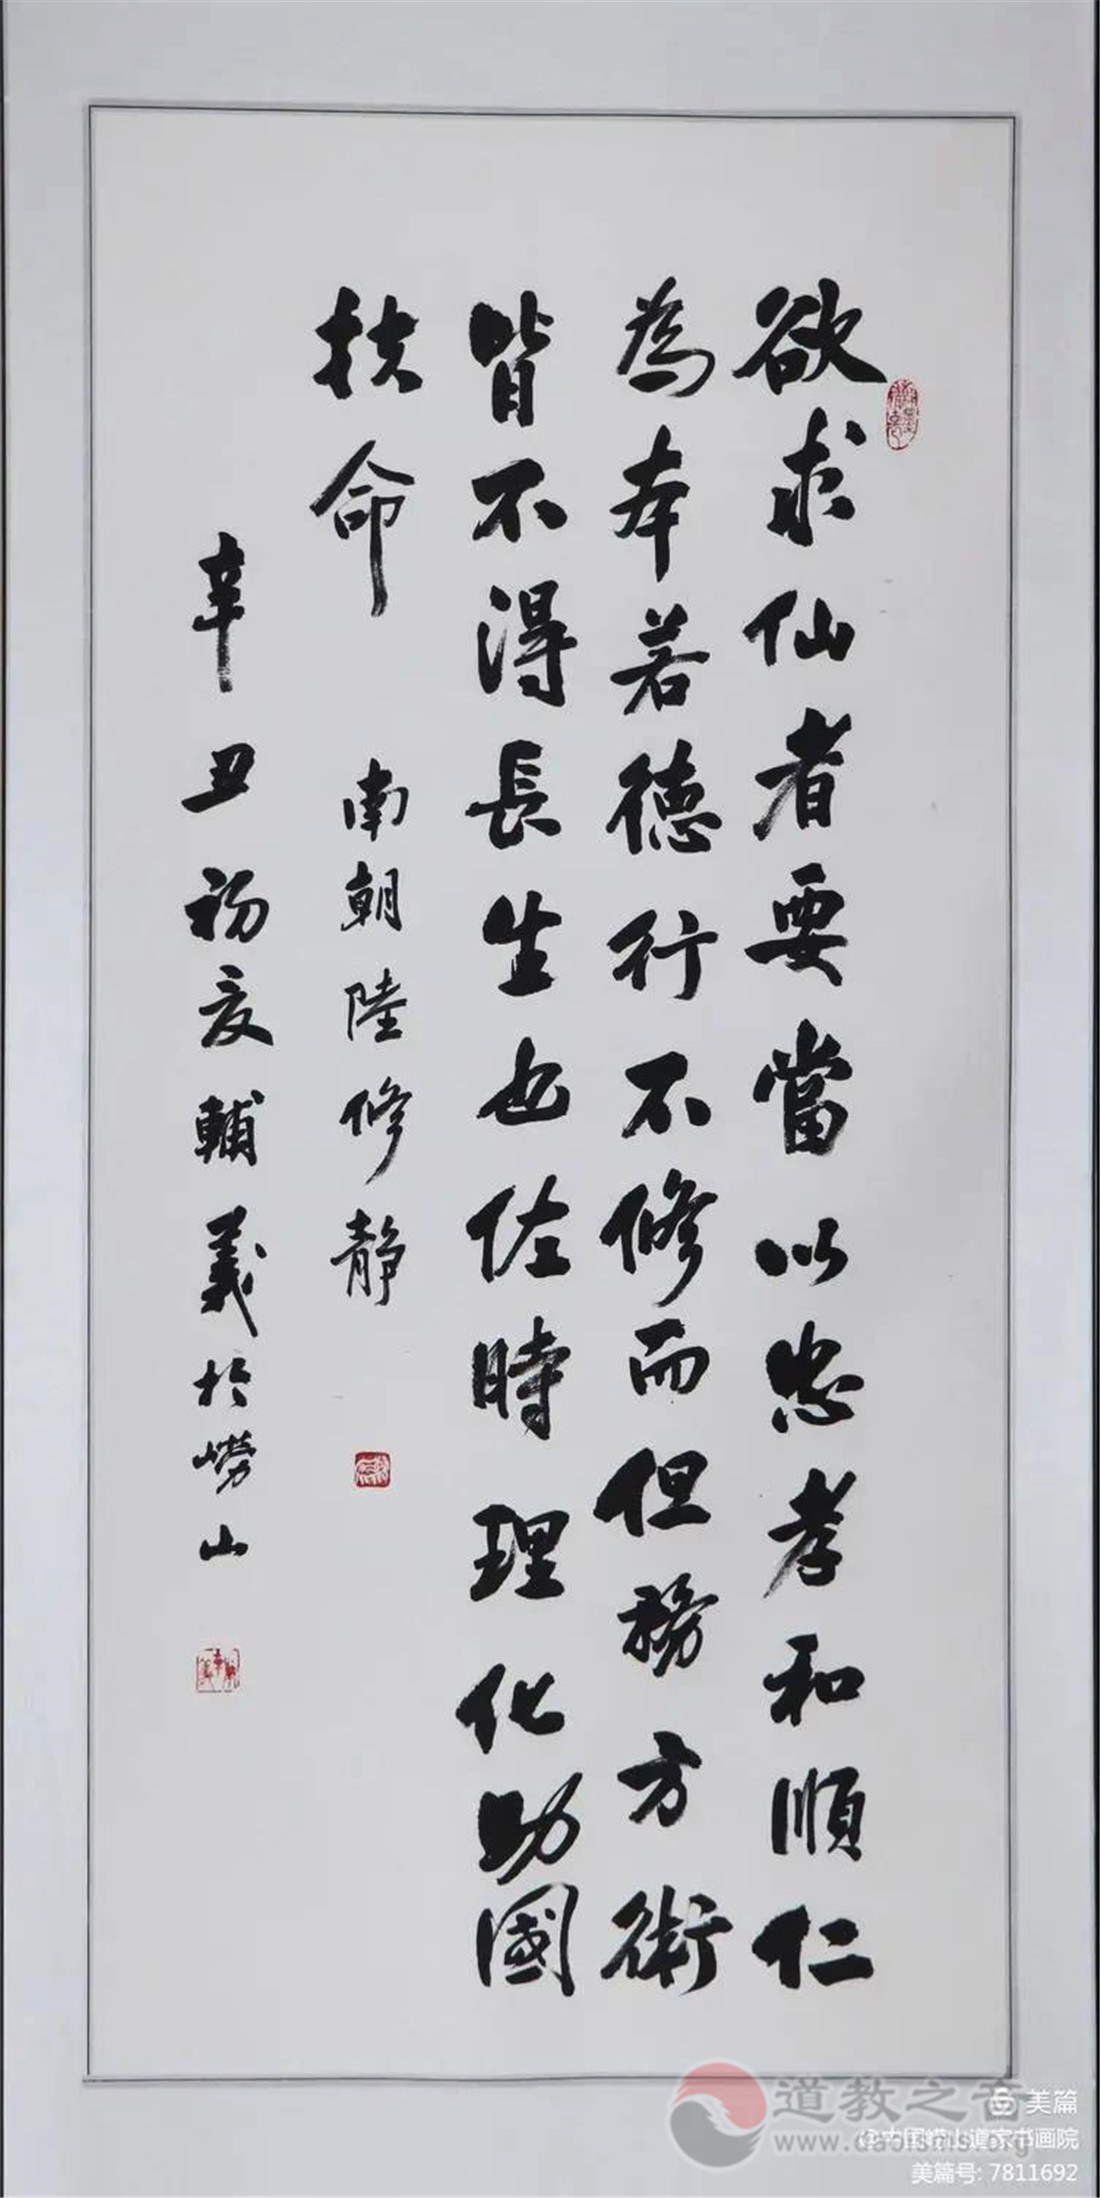 欲求仙者要當以忠孝和順仁
為本若德行不修而但務方術
皆不得長生也佐時理化助國
扶命
南朝陸修静
辛丑初夏輔義於嶗山
道教之音
www.daoisms.org
美篇
@中国崂山道家书画院
美篇号: 7811692